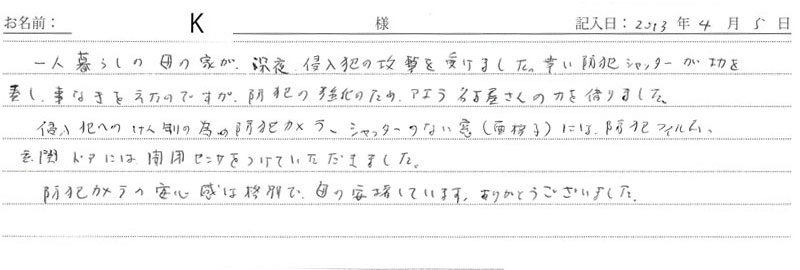 お名前： K 様 記入日：2013年4月5日
一人暮らしの母の家が、深夜、侵入犯の攻撃を受けました。幸い防犯シャッターが功を
奏し、事なきをえたのですが、防犯の強化のため、アエラ名古屋さんの力を借りました。
侵入犯への威嚇の為の防犯カメラ、シャッターのない窓（面格子）には、防犯フィルム、
玄関ドアには開閉センサをつけていただきました。
防犯カメラの安心感は格別で、母の安堵しています。ありがとうございました。